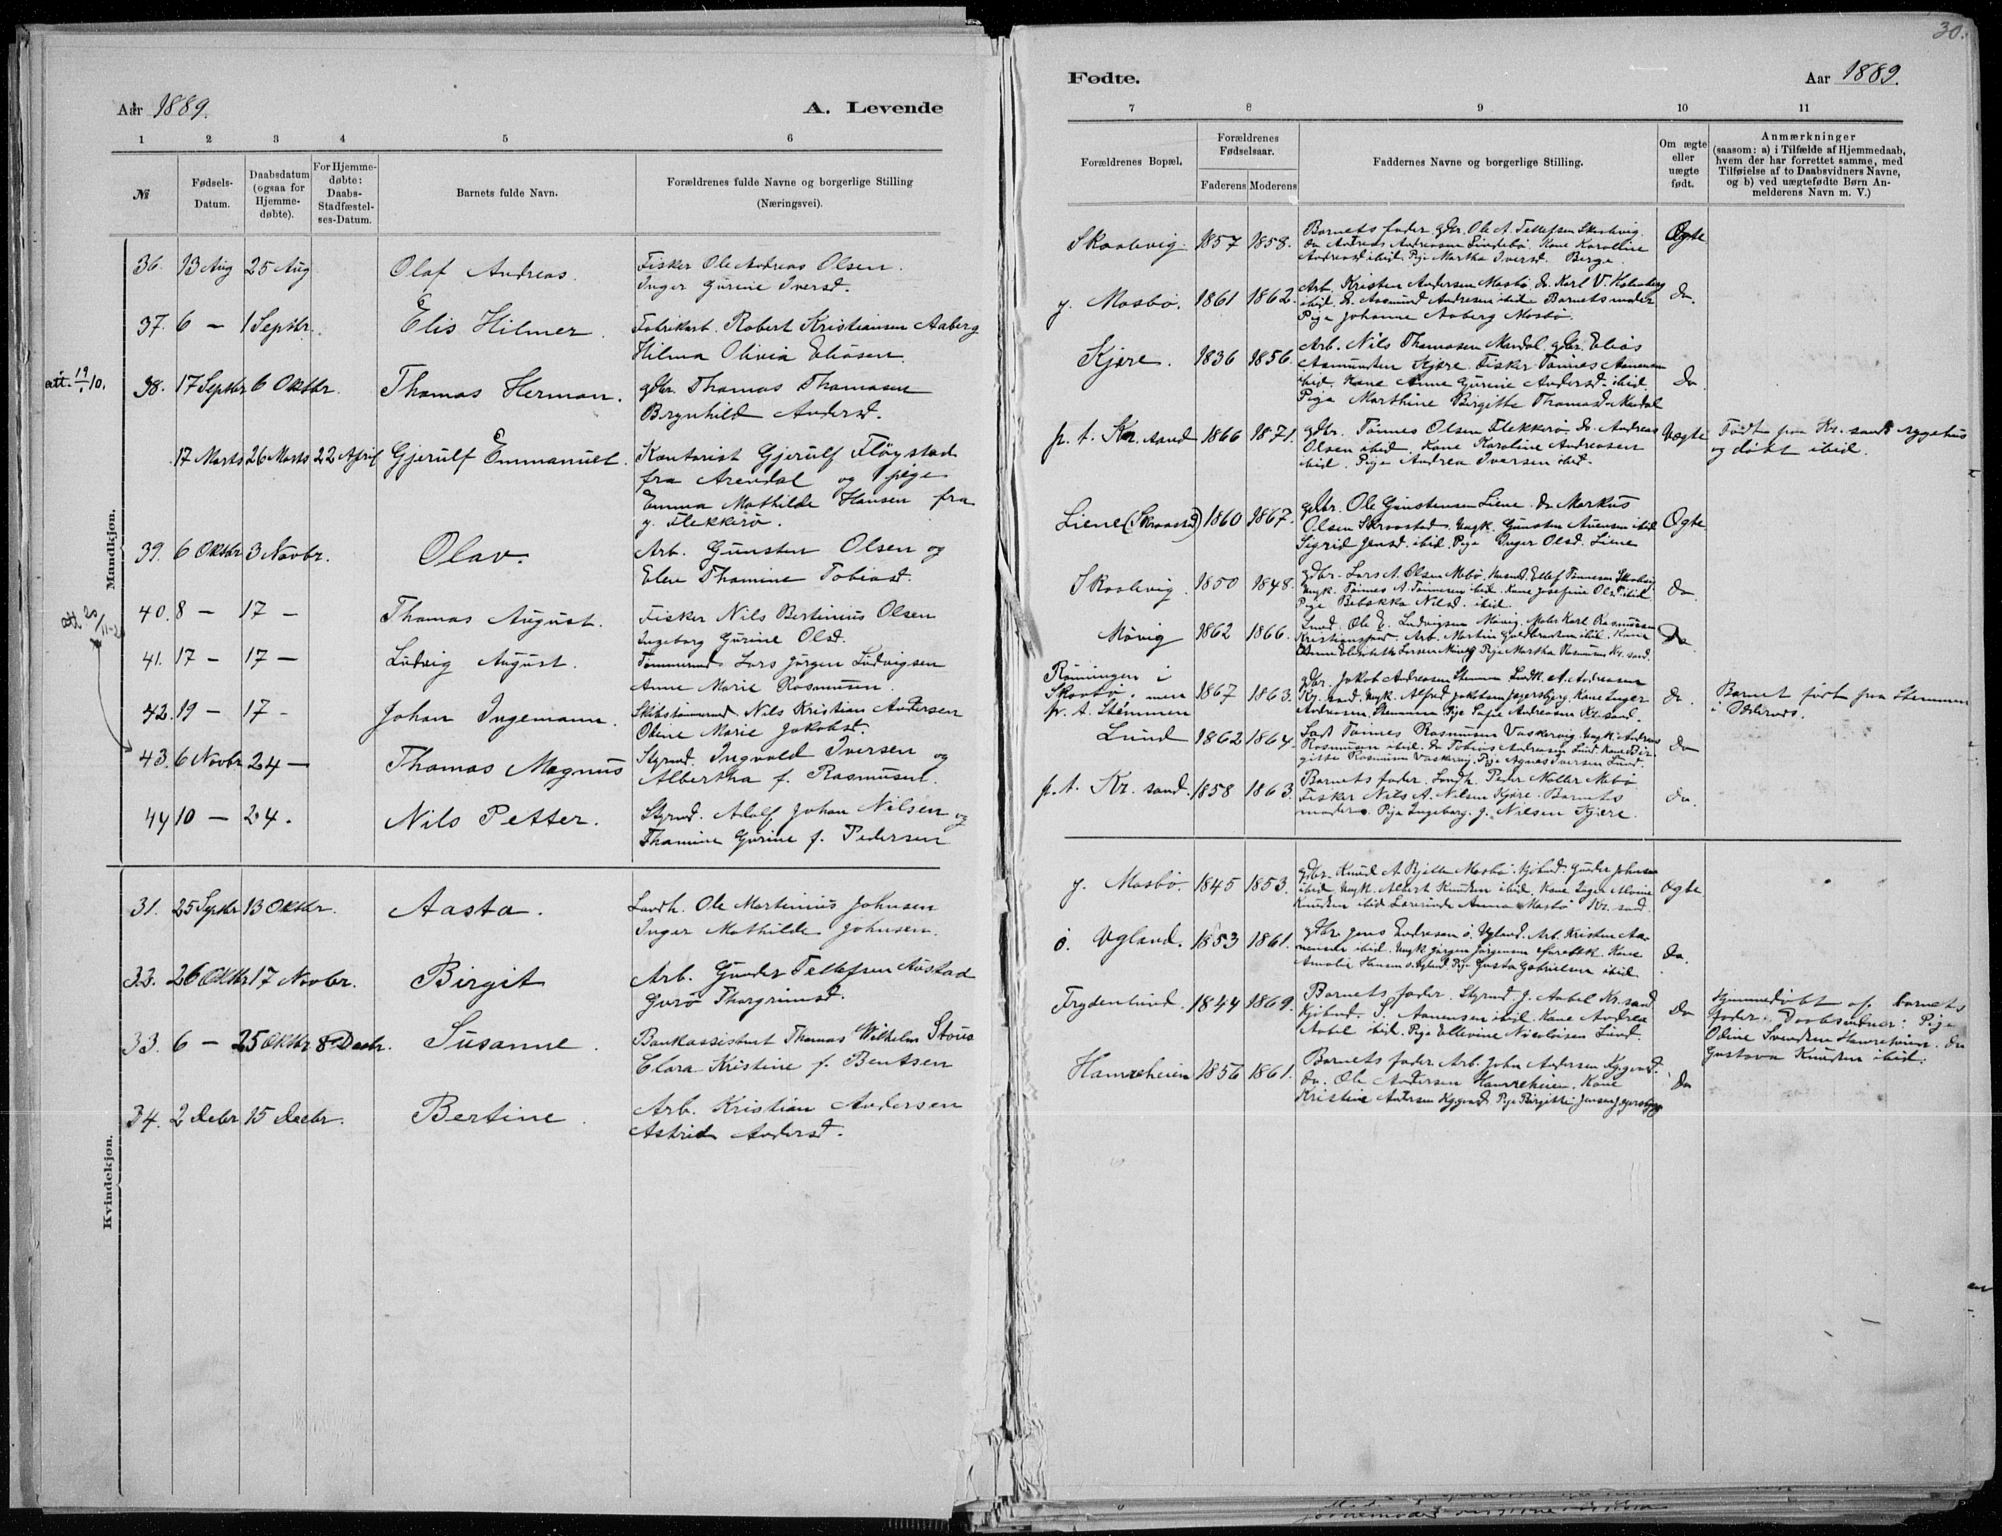 30.
Aar 1889.
A. Levende
Fødte.
Aar 1889.
1 2 3 4 5 6
7 8 9 10 11
№
Fødsels-
Datum.
Daabsdatum
(ogsaa for
Hjemme-
døbte).
For Hjemme-
døbte:
Daabs-
Stadfæstel-
ses-Datum.
Barnets fulde Navn.
Forældrenes fulde Navne og borgerlige Stilling
(Næringsvei).
Forældrenes Bopæl.
Forældrenes
Fødselsaar.
Faderens Moderens
Faddernes Navne og borgerlige Stilling.
Om ægte
eller
uægte
født.
Anmærkninger
(saasom: a) i Tilfælde af Hjemmedaab,
hvem der har forrettet samme, med
Tilføielse af to Daabsvidners Navne,
og b) ved uægtefødte Børn An-
melderens Navn m. V.)
Mandkjøn.
36. 13 Aug 25 Aug Olaf Andreas. Fisker Ole Andreas Olsen.
Inger Gurine Iversd.
37. 6 — 1 Septbr. Elis Hilmer. Fabrikarb. Robert Kristiansen Aaberg
Hilma Olivia Eliasen.
att. 19/10.
38. 17 Septbr 6 Oktbr. Thomas Herman. gdbr. Thomas Thomasen
Brynhild Andersd.
17 Marts 26 Marts 22 April Gjerulf Emmanuel. Kontorist Gjerulf Fløystad
fra Arendal og pige
Emma Mathilde Hansen fra
y. Flekkerø.
39. 6 Oktbr 3 Novbr. Olav. Arb. Gunsten Olsen og
Elen Thomine Tobiasd.
40. 8 — 17 — Thomas August. Fisker Nils Bertinius Olsen
Ingeborg Gurine Olsd.
41. 17 — 17 — Ludvig August. Tømmermd. Lars Jørgen Ludvigsen
Anne Marie Rasmussen.
42. 19 — 17 — Johan Ingemann. Skibstømmermd. Nils Kristian Andersen
Oline Marie Jakobsd.
43. 6 Novbr 24 — Thomas Magnus Styrmd. Ingvald Iversen og
Albertha f. Rasmusen.
44 10 — 24. Nils Petter. Styrmd. Adolf Johan Nilsen og
Thomine Gurine f. Pedersen
Kvindekjøn.
31. 25 Septbr 13 Oktbr. Aasta. Landh. Ole Martinius Johnsen
Inger Mathilde Johnsen.
33. 26 Oktbr 17 Novbr. Birgit Arb. Gunder Tellefsen Aastad
Gurø Thorgrimsd.
33. 6 — 25 Oktbr 8 Decbr. Susanne. Bankassistent Thomas Wilhelm Stous
Clara Kristine f. Bentsen
34. 2 Decbr 15 Decbr. Bertine. Arb. Kristian Andersen
Astrid Andersd.
Skaalevig. 1857 1858. Barnets fader, gdbr. Ole A. Tellefsen Skaalvig.
do Andreas Andreasen Lindebø. Kone Karoline
Andreasd ibid. Pige Martha Iversd. Berge. Ægte
y. Mosbø. 1861 1862. Arb. Kristen Andersen Mosbø. do. Karl V. Holmberg
ibid. do. Aasmund Andresen ibid. Barnets moder
Pige Johanne Aaberg Mosbø. do.
Kjære. 1836 1856. Arb. Nils Thomasen Mandal. gdbr. Elias
Asmundsen Kjære. Fisker Tønnes
ibid. Kone Anne Gurine Andersd. ibid.
Pige Marthine Birgitte Thomasd. Mandal Do.
p. t. Kr. sand 1866 1871. gdbr. Tønnes Olsen Flekkerø. do. Andreas
Olsen ibid. Kone Karoline Andreasen
ibid. Pige Andrea Iversen ibid. Uægte Født paa Kr.sands sygehus
og døbt ibid.
Liene (Skraastad) 1860 1867. gdbr. Ole Gunstensen Liene. do Markus
Olsen Skraastad. Ungk. Gunsten ibid
Sigrid Jensd. ibid. Pige Inger Olsd. Liene Ægte
Skaalevig. 1850 1848. gdbr. Lars A. Olsen Mebø. Ellef Tønnesen Skaalvig
Ungk. Tønnes A. Tønnesen ibid. Kone Josefine Olsd. ibid.
Pige Rebekka Nilsd. ibid. do.
Møvig 1862 1866. Ole E. Ludvigsen Møvig. Karl Rasmussen
Kristianssand. Arb. Martin ibid. Kone
Anne Elisabeth Larsen Møvig Pige Martha Rasmusen Kr. sand. Do
Rønningen i
Skraabø, men
p. t. Stemmen 1867 1863. gdbr. Jakob Andreasen Stemmen A. Andreasen
Kr. sand. Ungk. Alfred Jakobsen Jægersberg. Kone Inger
Andreasen, Stemmen. Pige Sofie Andreasen Kr. sand. do. Barnet født paa Stemmen
i Odderøes.
Lund 1862 1864. Tønnes Rasmusen Vaskervig. Ungk. Andreas
Rasmusen ibid. do Tobias Andreasen Lund. Kone Bir-
gitte Rasmusen Vaskervig. Pige Agnes Iversen Lund. do
p. t. Kr. sand. 1858 1863. Barnets fader. Landh. Peder Møller Mebø
Fisker Nils A. Nilsen Kjære. Barnets
moder. Pige Ingeborg J. Nilsen Kjære. do.
y. Mosbø. 1845 1853. gdbr. Knud A. Mosbø. Kjøbmd. Gunder Johnsen
ibid. Ungk. Albert Knudsen ibid. Kone Inger
Knudsen ibid Lærerinde Anna Mosbø Kr. sand. Ægte
ø. Ugland. 1853 1861. gdbr Jens Andresen ø. Ugland. Arb. Kristen
ibid. Ungk Jørgen Jørgensen Kone
Amalie Hansen ø. Ugland. Pige Gusta Gabrielsen ibid. Do.
Frydenlund. 1844 1869. Barnets fader. Styrmd. J. Aabel Kr. sand
Kjøbmd. S. Aanensen ibid. Kone Andrea
Aabel ibid. Pige Ellevine Nicolaisen Lund. Do Hjemmedøbt af barnets
fader. Daabsvidner: Pige
Odine Svendsen Hamreheien. do
Gustava Knudsen ibid.
Hamreheien 1856 1861. Barnets fader. Arb. John Andersen
do. Ole Andersen Hamreheien. Kone
Kristine Andersen Pige Birgitte Jensen Jægersberg Do